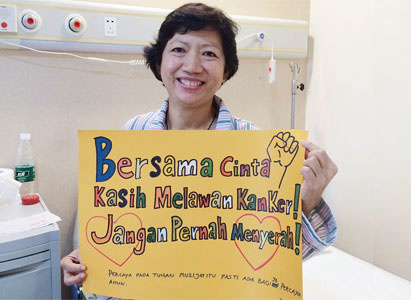 Bersama Cinta
Kasih Melawan Kanker!
Jangan Pernah Menyerah!
PERCAYA PADA TUHAN MUZIJAT ITU PASTI ADA BAGI PERCAYA
AMIN